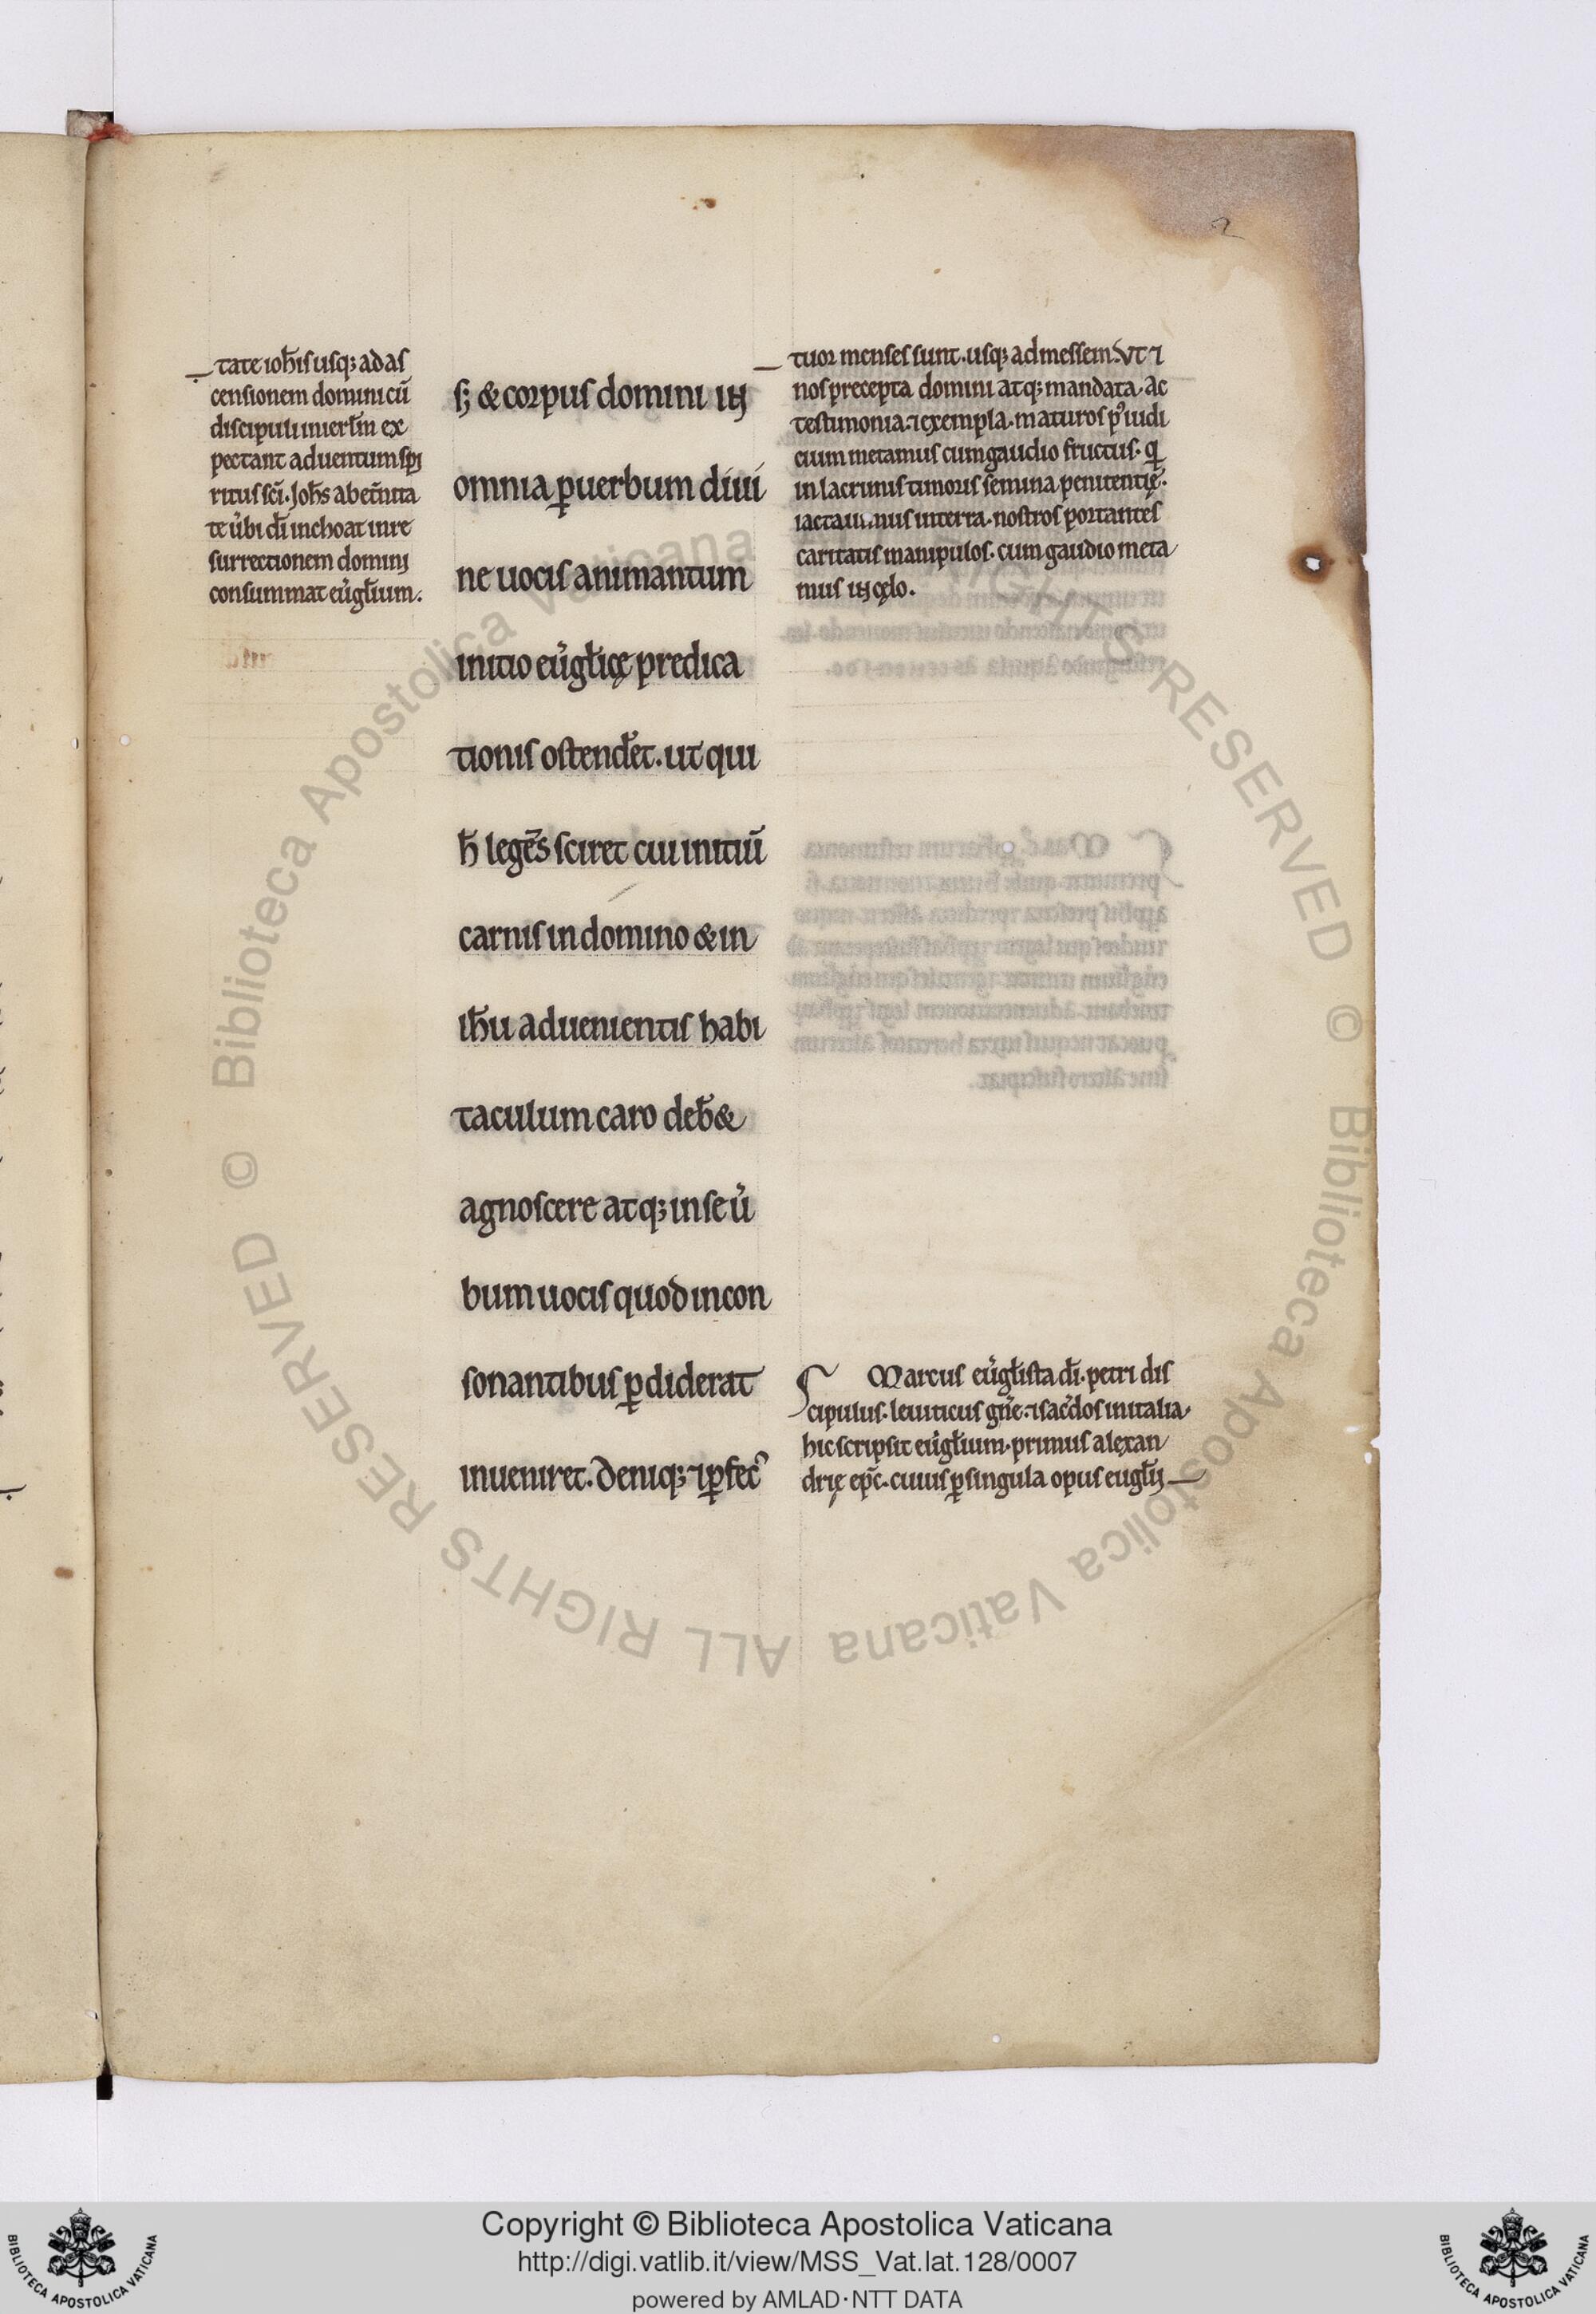 2
tate ioh̄is usq; ad as
censionem domini cū
discipuli in ierl̄m ex
pectant aduentum spi
ritus sc̄i. Joh̄s ab et̄nita
te u͛bi dī inchoat in re
surrectionem domini
consummat eu͛gl̄ium.
s; & corpus domini in
omnia ꝑ uerbum diui
ne uocis animantum
initio eu͛gl̄icę predica
tionis ostend͛et. ut qui
h̄ legēs sciret cui initiū
carnis in domino & in
ih̄u aduenientis habi
taculum caro deb̄&
agnoscere atq; in se u͛
bum uocis quod in con
sonantibus ꝑdiderat
inueniret. Deniq; ⁊ ꝑfec᷒
tuor menses sunt. usq; ad messem. Vt ⁊
nos precepta domini atq; mandata. ac
testimonia. ⁊ exempla. maturos p᷒ iudi
cium metamus cum gaudio fructus. q̄
in lacrimis timoris semina penitentię.
iactauimus in terra. nostros portantes
caritatis manipulos. cum gaudio meta
mus in cęlo.
Marcus eu͛gl̄ista dī. petri dis
cipulus. leuiticus gn̄e. ⁊ sac͛dos in italia.
hic scripsit eu͛gl̄ium. primus alexan
drię ep̄c. cuius ꝑ singula opus eugl̄ij
© Biblioteca Apostolica Vaticana ALL RIGHTS RESERVED
© Biblioteca Apostolica Vaticana ALL RIGHTS RESERVED
Copyright © Biblioteca Apostolica Vaticana
http://digi.vatlib.it/view/MSS_Vat.lat.128/0007
powered by AMLAD·NTT DATA
BIBLIOTECA APOSTOLICA VATICANA
BIBLIOTECA APOSTOLICA VATICANA